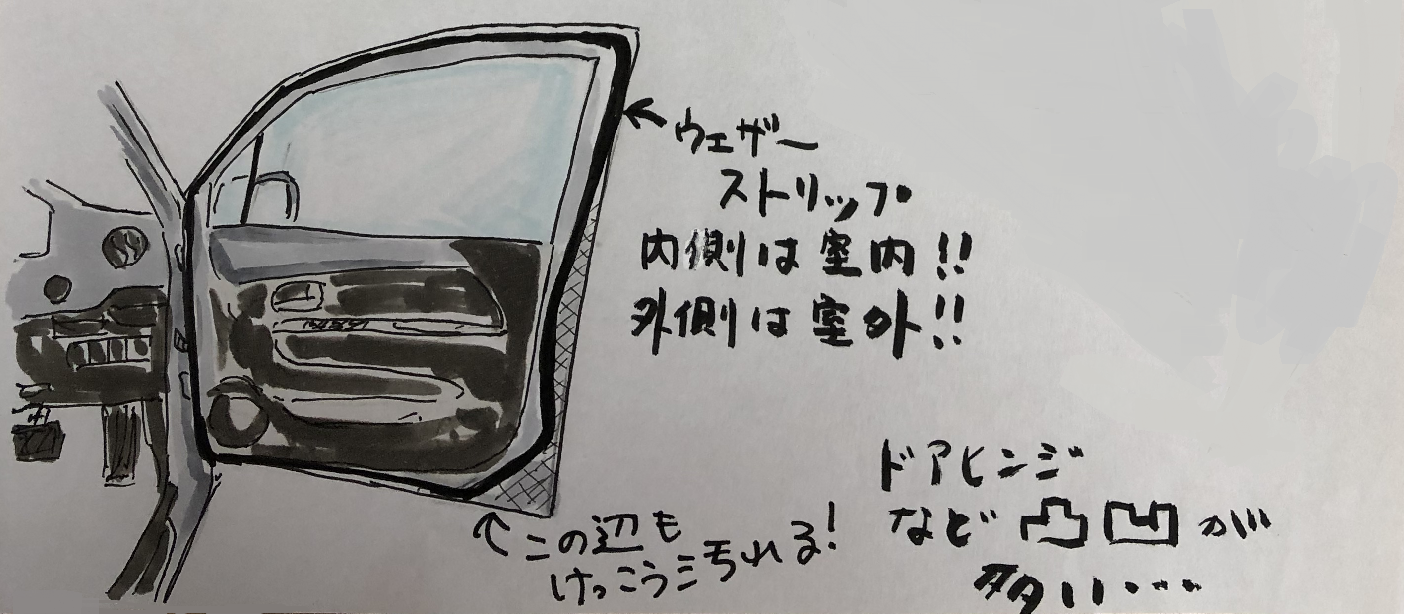 ウェザー
ストリップ
内側は室内!!
外側は室外!!
この辺も
けっこう汚れる!
ドアヒンジ
など凸凹が
多い…